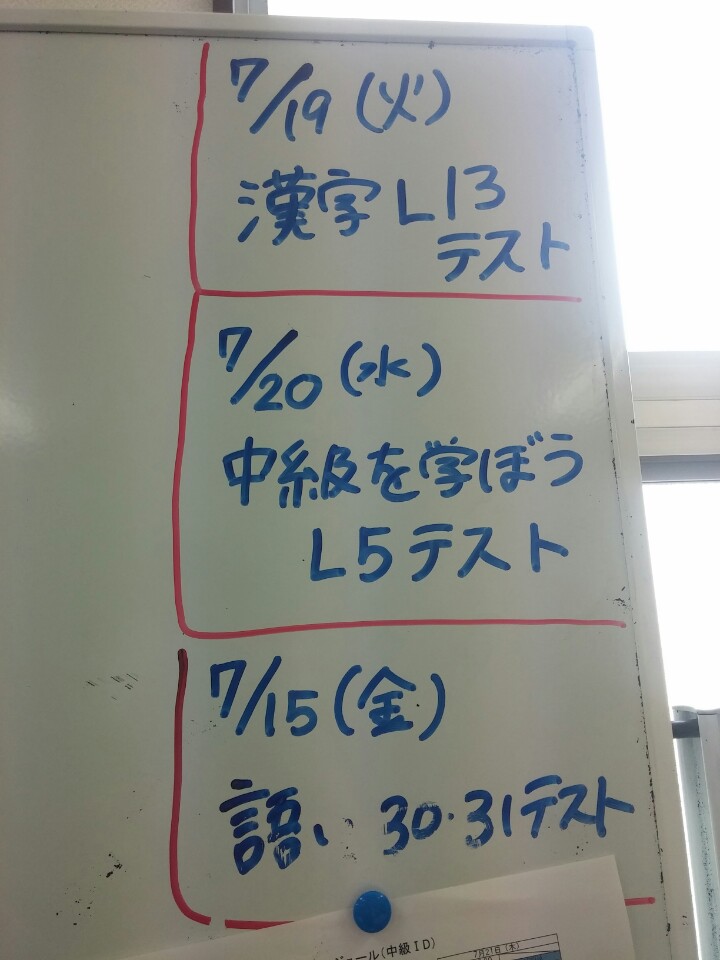 7/19(火)
漢字L13
テスト
7/20(水)
中級を学ぼう
L5テスト
7/15(金)
語い 30・31テスト
ジュール(中級ID)
7月21日(木)